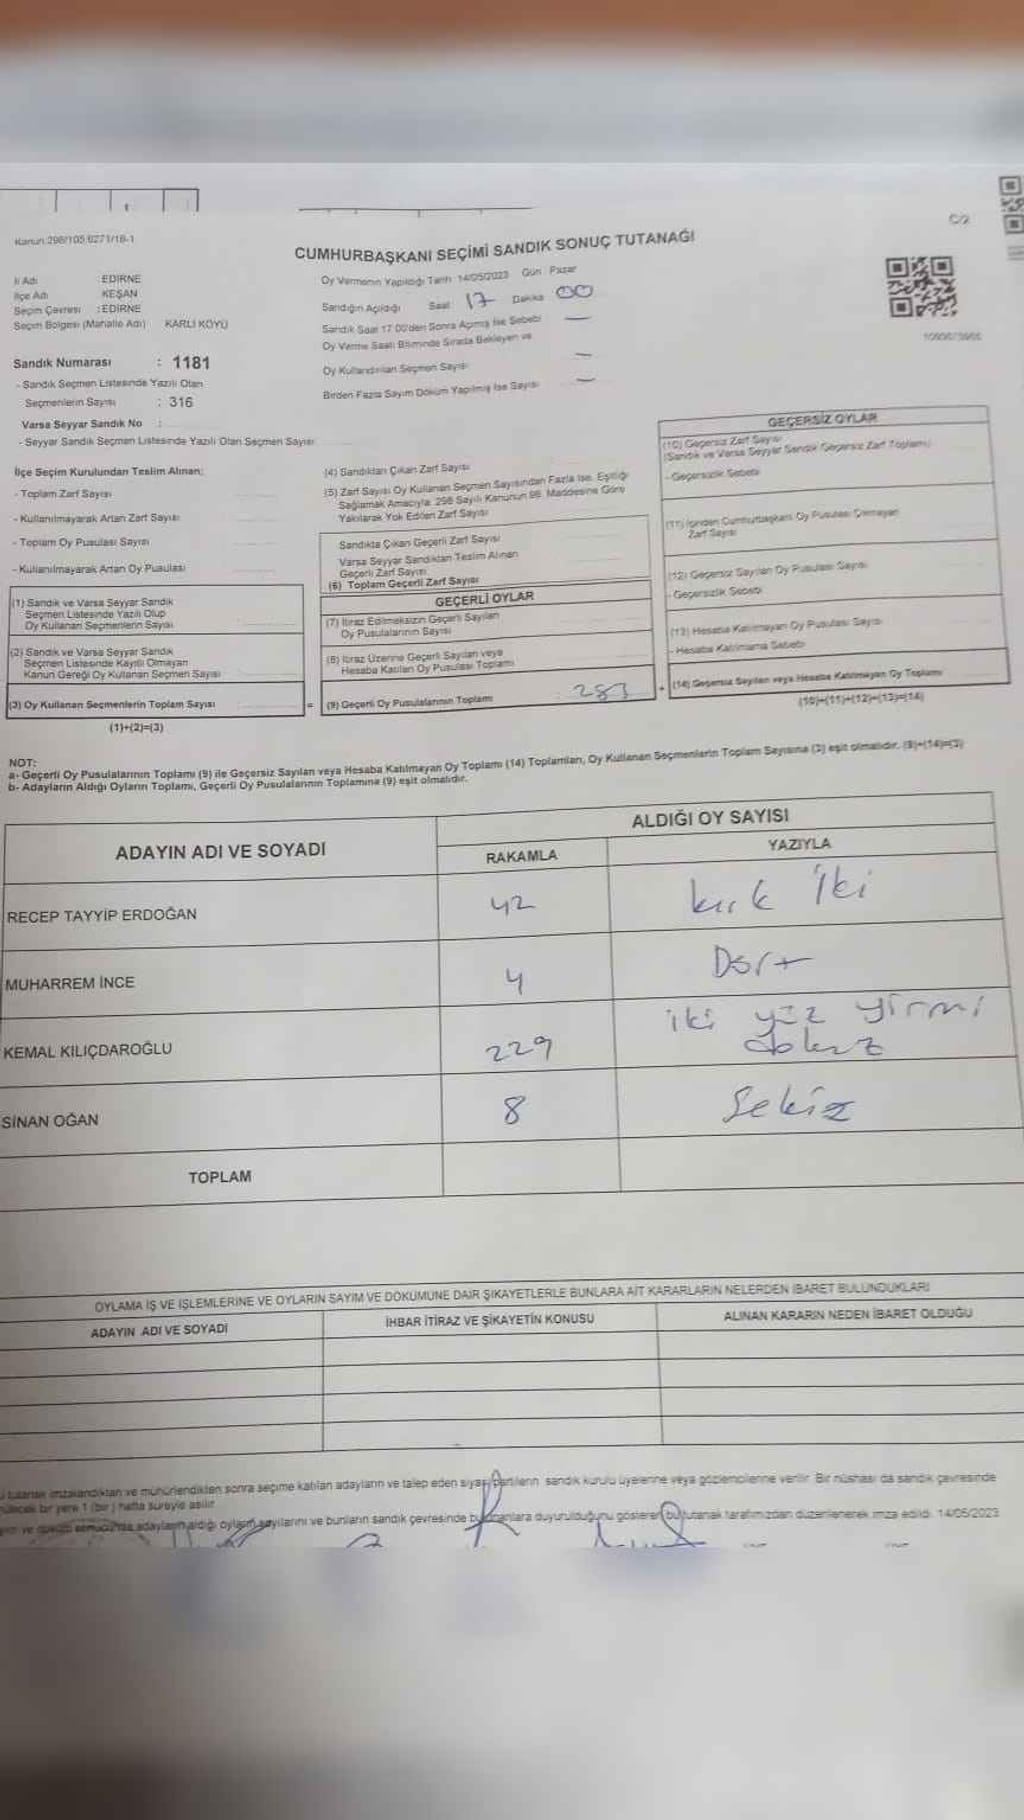 C/2
Kanun 298/105,6271/18-1
CUMHURBAŞKANI SEÇİMİ SANDIK SONUÇ TUTANAĞI
İl Adı : EDİRNE
İlçe Adı : KEŞAN
Seçim Çevresi : EDİRNE
Seçim Bölgesi (Mahalle Adı) KARLI KÖYÜ
Oy Vermenin Yapıldığı Tarih 14/05/2023 Gün Pazar
Sandığın Açıldığı Saat 17 Dakika 00
Sandık Saat 17 00'den Sonra Açılmış İse Sebebi —
Oy Verme Saati Bitiminde Sırada Bekleyen ve
Oy Kullandırılan Seçmen Sayısı —
Birden Fazla Sayım Döküm Yapılmış İse Sayısı —
Sandık Numarası : 1181
- Sandık Seçmen Listesinde Yazılı Olan
Seçmenlerin Sayısı : 316
Varsa Seyyar Sandık No :
- Seyyar Sandık Seçmen Listesinde Yazılı Olan Seçmen Sayısı
İlçe Seçim Kurulundan Teslim Alınan:
- Toplam Zarf Sayısı
- Kullanılmayarak Artan Zarf Sayısı
- Toplam Oy Pusulası Sayısı
- Kullanılmayarak Artan Oy Pusulası
(1) Sandık ve Varsa Seyyar Sandık
Seçmen Listesinde Yazılı Olup
Oy Kullanan Seçmenlerin Sayısı
(2) Sandık ve Varsa Seyyar Sandık
Seçmen Listesinde Kayıtlı Olmayan
Kanun Gereği Oy Kullanan Seçmen Sayısı
(3) Oy Kullanan Seçmenlerin Toplam Sayısı =
(1)+(2)=(3)
(4) Sandıktan Çıkan Zarf Sayısı
(5) Zarf Sayısı Oy Kullanan Seçmen Sayısından Fazla İse, Eşitliği
Sağlamak Amacıyla 298 Sayılı Kanunun 98. Maddesine Göre
Yakılarak Yok Edilen Zarf Sayısı
Sandıkta Çıkan Geçerli Zarf Sayısı
Varsa Seyyar Sandıktan Teslim Alınan
Geçerli Zarf Sayısı
(6) Toplam Geçerli Zarf Sayısı
GEÇERLİ OYLAR
(7) İtiraz Edilmeksizin Geçerli Sayılan
Oy Pusulalarının Sayısı
(8) İtiraz Üzerine Geçerli Sayılan veya
Hesaba Katılan Oy Pusulası Toplamı
(9) Geçerli Oy Pusulalarının Toplamı : 283 +
GEÇERSİZ OYLAR
(10) Geçersiz Zarf Sayısı
(Sandık ve Varsa Seyyar Sandık Geçersiz Zarf Toplamı)
- Geçersizlik Sebebi
(11) İçinden Cumhurbaşkanı Oy Pusulası Çıkmayan
Zarf Sayısı
(12) Geçersiz Sayılan Oy Pusulası Sayısı
- Geçersizlik Sebebi
(13) Hesaba Katılmayan Oy Pusulası Sayısı
- Hesaba Katılmama Sebebi
(14) Geçersiz Sayılan veya Hesaba Katılmayan Oy Toplamı
(10)+(11)+(12)+(13)=(14)
NOT:
a- Geçerli Oy Pusulalarının Toplamı (9) ile Geçersiz Sayılan veya Hesaba Katılmayan Oy Toplamı (14) Toplamları, Oy Kullanan Seçmenlerin Toplam Sayısına (3) eşit olmalıdır. (9)+(14)=(3)
b- Adayların Aldığı Oyların Toplamı, Geçerli Oy Pusulalarının Toplamına (9) eşit olmalıdır.
ADAYIN ADI VE SOYADI
ALDIĞI OY SAYISI
RAKAMLA YAZIYLA
RECEP TAYYİP ERDOĞAN 42 kırk iki
MUHARREM İNCE 4 Dört
KEMAL KILIÇDAROĞLU 229 iki yüz yirmi
dokuz
SİNAN OĞAN 8 Sekiz
TOPLAM
OYLAMA İŞ VE İŞLEMLERİNE VE OYLARIN SAYIM VE DÖKÜMÜNE DAİR ŞİKAYETLERLE BUNLARA AİT KARARLARIN NELERDEN İBARET BULUNDUKLARI
ADAYIN ADI VE SOYADI İHBAR İTİRAZ VE ŞİKAYETİN KONUSU ALINAN KARARIN NEDEN İBARET OLDUĞU
tutanak imzalandıktan ve mühürlendikten sonra seçime katılan adayların ve talep eden siyasi partilerin sandık kurulu üyelerine veya gözlemcilerine verilir. Bir nüshası da sandık çevresinde
bir yere 1 (bir) hafta süreyle asılır
ve döküm sonucunda adayların aldığı oyların sayılarını ve bunların sandık çevresinde bulunanlara duyurulduğunu gösteren bu tutanak tarafımızdan düzenlenerek imza edildi. 14/05/2023